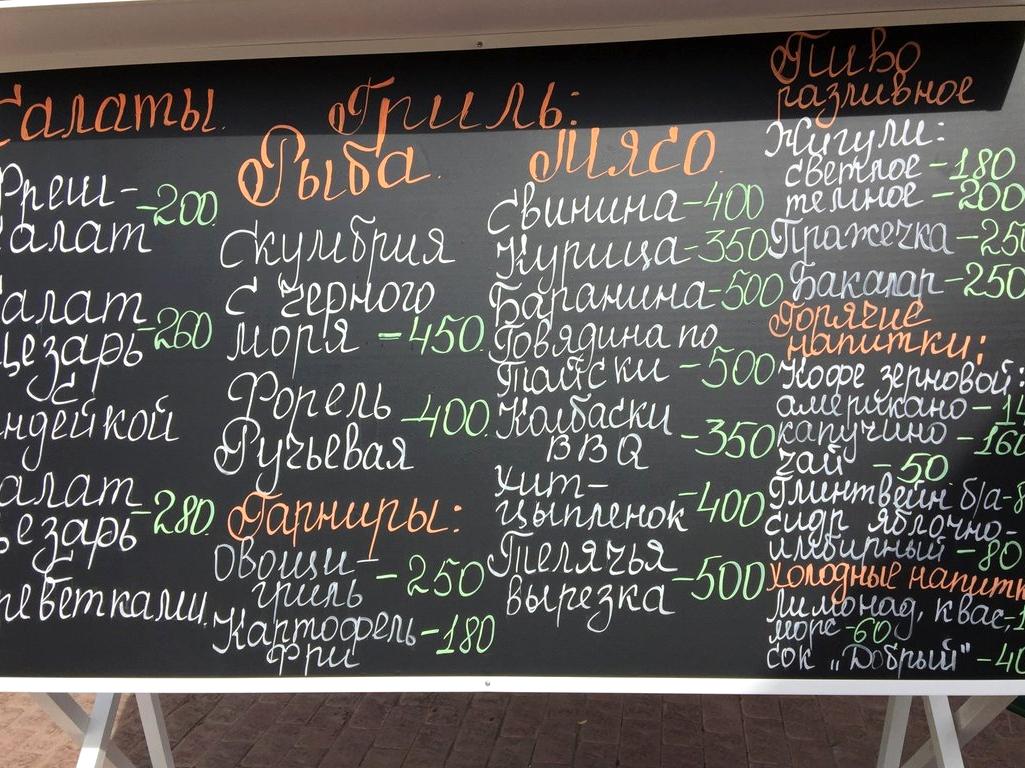 Салаты.
Фреш-
салат -200
Салат
Цезарь -260
с
индейкой
Салат
Цезарь -280
с
креветками.
Гриль:
Рыба.
Скумбрия
с Черного
моря -450.
Форель
Ручьевая -400.
Гарниры:
Овощи-
гриль -250
Картофель
фри -180
Мясо.
Свинина-400
Курица-350
Баранина-500
Говядина по
Тайски -500
Колбаски
BBQ -350
Хит-
цыпленок -400
Телячья
вырезка -500
Пиво
разливное
Жигули:
светлое -180
темное -200
Пражечка -250
Бакалар -250
Горячие
напитки:
Кофе зерновой:
американо -1
капучино -160
чай -50
Глинтвейн б/а-8
сидр яблочно-
имбирный -80
Холодные напитк
лимонад, квас,-1
морс -60
сок „Добрый" -40